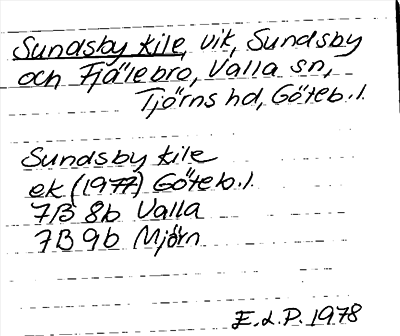 Sundsby kile, vik, Sundsby
och Fjälebro, Valla sn,
Tjörns hd, Göteb.l.
Sundsby kile
ek (1977) Göteb.l.
7B 8b Valla
7B 9b Mjörn
E.L.P. 1978